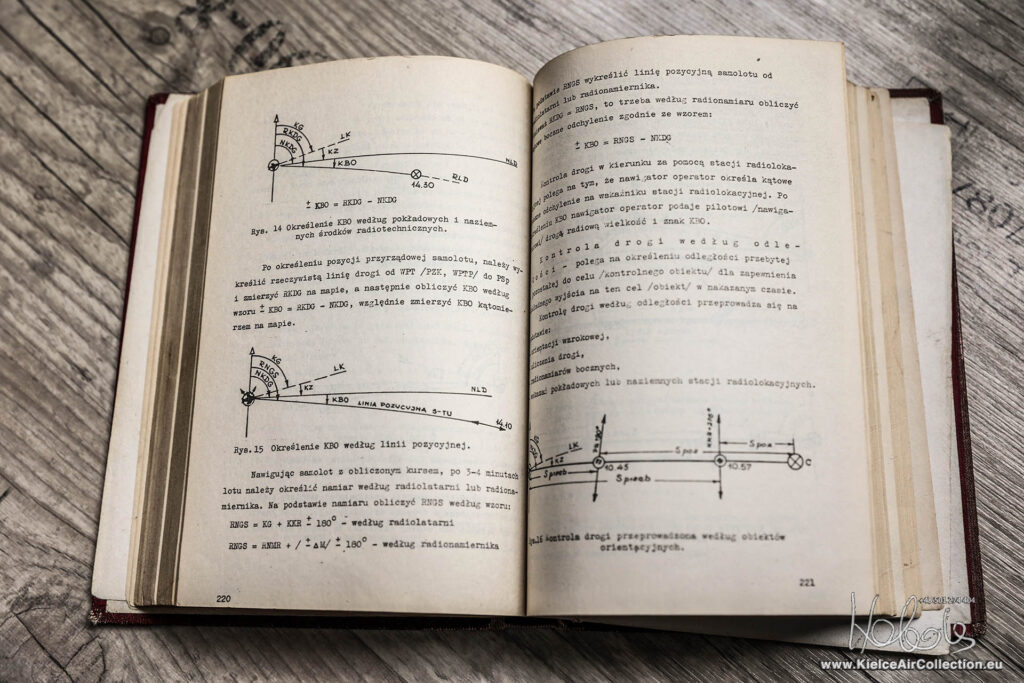 KG
RKDG
NKDG
LK
KZ
KBO
NLD
RLD
14.30
± KBO = RKDG - NKDG
Rys. 14 Określenie KBO według pokładowych i naziem-
nych środków radiotechnicznych.
Po określeniu pozycji przyrządowej samolotu, należy wy-
kreślić rzeczywistą linię drogi od WPT /PZK, WPTP/ do PSp
i zmierzyć RKDG na mapie, a następnie obliczyć KBO według
wzoru ± KBO = RKDG - NKDG, względnie zmierzyć KBO kątomie-
rzem na mapie.
KG
RNGS
NKDG
LK
KZ
KBO
NLD
LINIA POZYCYJNA S-TU
14.10
Rys.15 Określenie KBO według linii pozycyjnej.
Nawigując samolot z obliczonym kursem, po 3-4 minutach
lotu należy określić namiar według radiolatarni lub radiona-
miernika. Na podstawie namiaru obliczyć RNGS według wzoru:
RNGS = KG + KKR ± 180° - według radiolatarni
RNGS = RNMR + / ± ΔM/ ± 180° - według radionamiernika
220
RNGS wykreślić linię pozycyjną samolotu od
lub radionamiernika.
RKDG = RNGS, to trzeba według radionamiaru obliczyć
boczne odchylenie zgodnie ze wzorem:
± KBO = RNGS - NKDG
Kontrola drogi w kierunku za pomocą stacji radioloka-
polega na tym, że nawigator operator określa kątowe
odchylenie na wskaźniku stacji radiolokacyjnej. Po
KBO nawigator operator podaje pilotowi /nawiga-
drogą radiową wielkość i znak KBO.
Kontrola drogi według odle-
- polega na określeniu odległości przebytej
do celu /kontrolnego obiektu/ dla zapewnienia
wyjścia na ten cel /obiekt/ w nakazanym czasie.
Kontrolę drogi według odległości przeprowadza się na
wzrokowej,
drogi,
bocznych,
pokładowych lub naziemnych stacji radiolokacyjnych.
LK
KZ
S poz
S poz
C
10.45
10.57
S przeb
S przeb
Kontrola drogi przeprowadzona według obiektów
orientacyjnych.
221
www.KielceAirCollection.eu